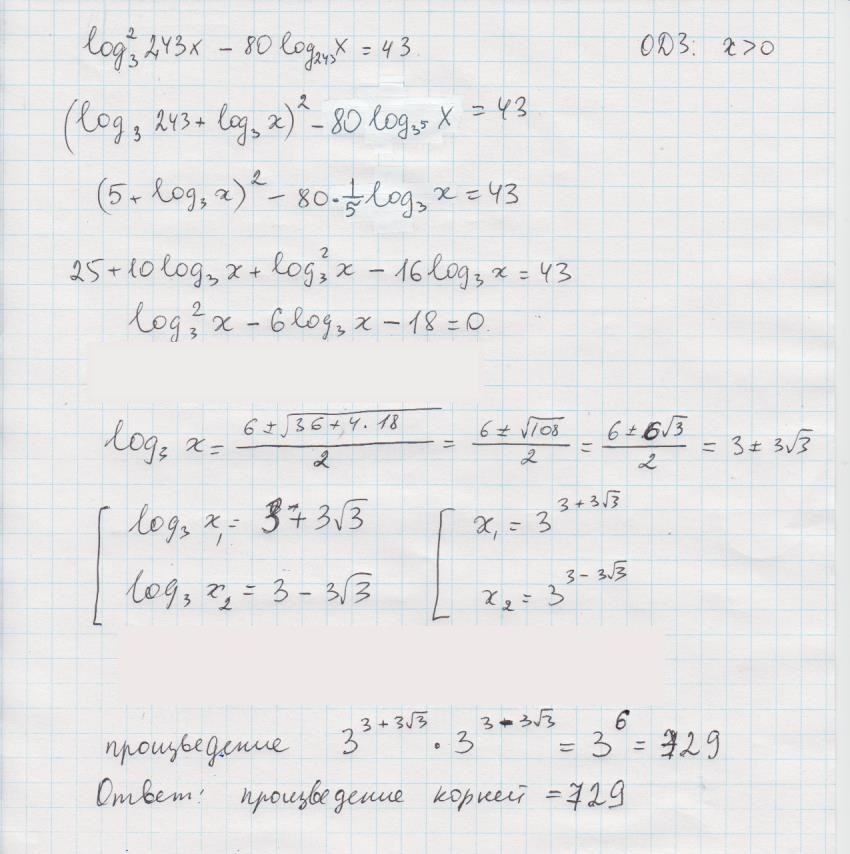 log₃² 243x − 80 log₂₄₃x = 43. ОДЗ: x>0
(log₃ 243 + log₃ x)² − 80 log₃⁵ x = 43
(5 + log₃ x)² − 80 · 1/5 log₃ x = 43
25 + 10 log₃ x + log₃² x − 16 log₃ x = 43
log₃² x − 6 log₃ x − 18 = 0.
log₃ x = (6 ± √(36 + 4 · 18))/2 = (6 ± √108)/2 = (6 ± 6√3)/2 = 3 ± 3√3
[ log₃ x₁ = 3 + 3√3 [ x₁ = 3^(3 + 3√3)
log₃ x₂ = 3 − 3√3 x₂ = 3^(3 − 3√3)
произведение 3^(3 + 3√3) · 3^(3 − 3√3) = 3⁶ = 729
Ответ: произведение корней = 729